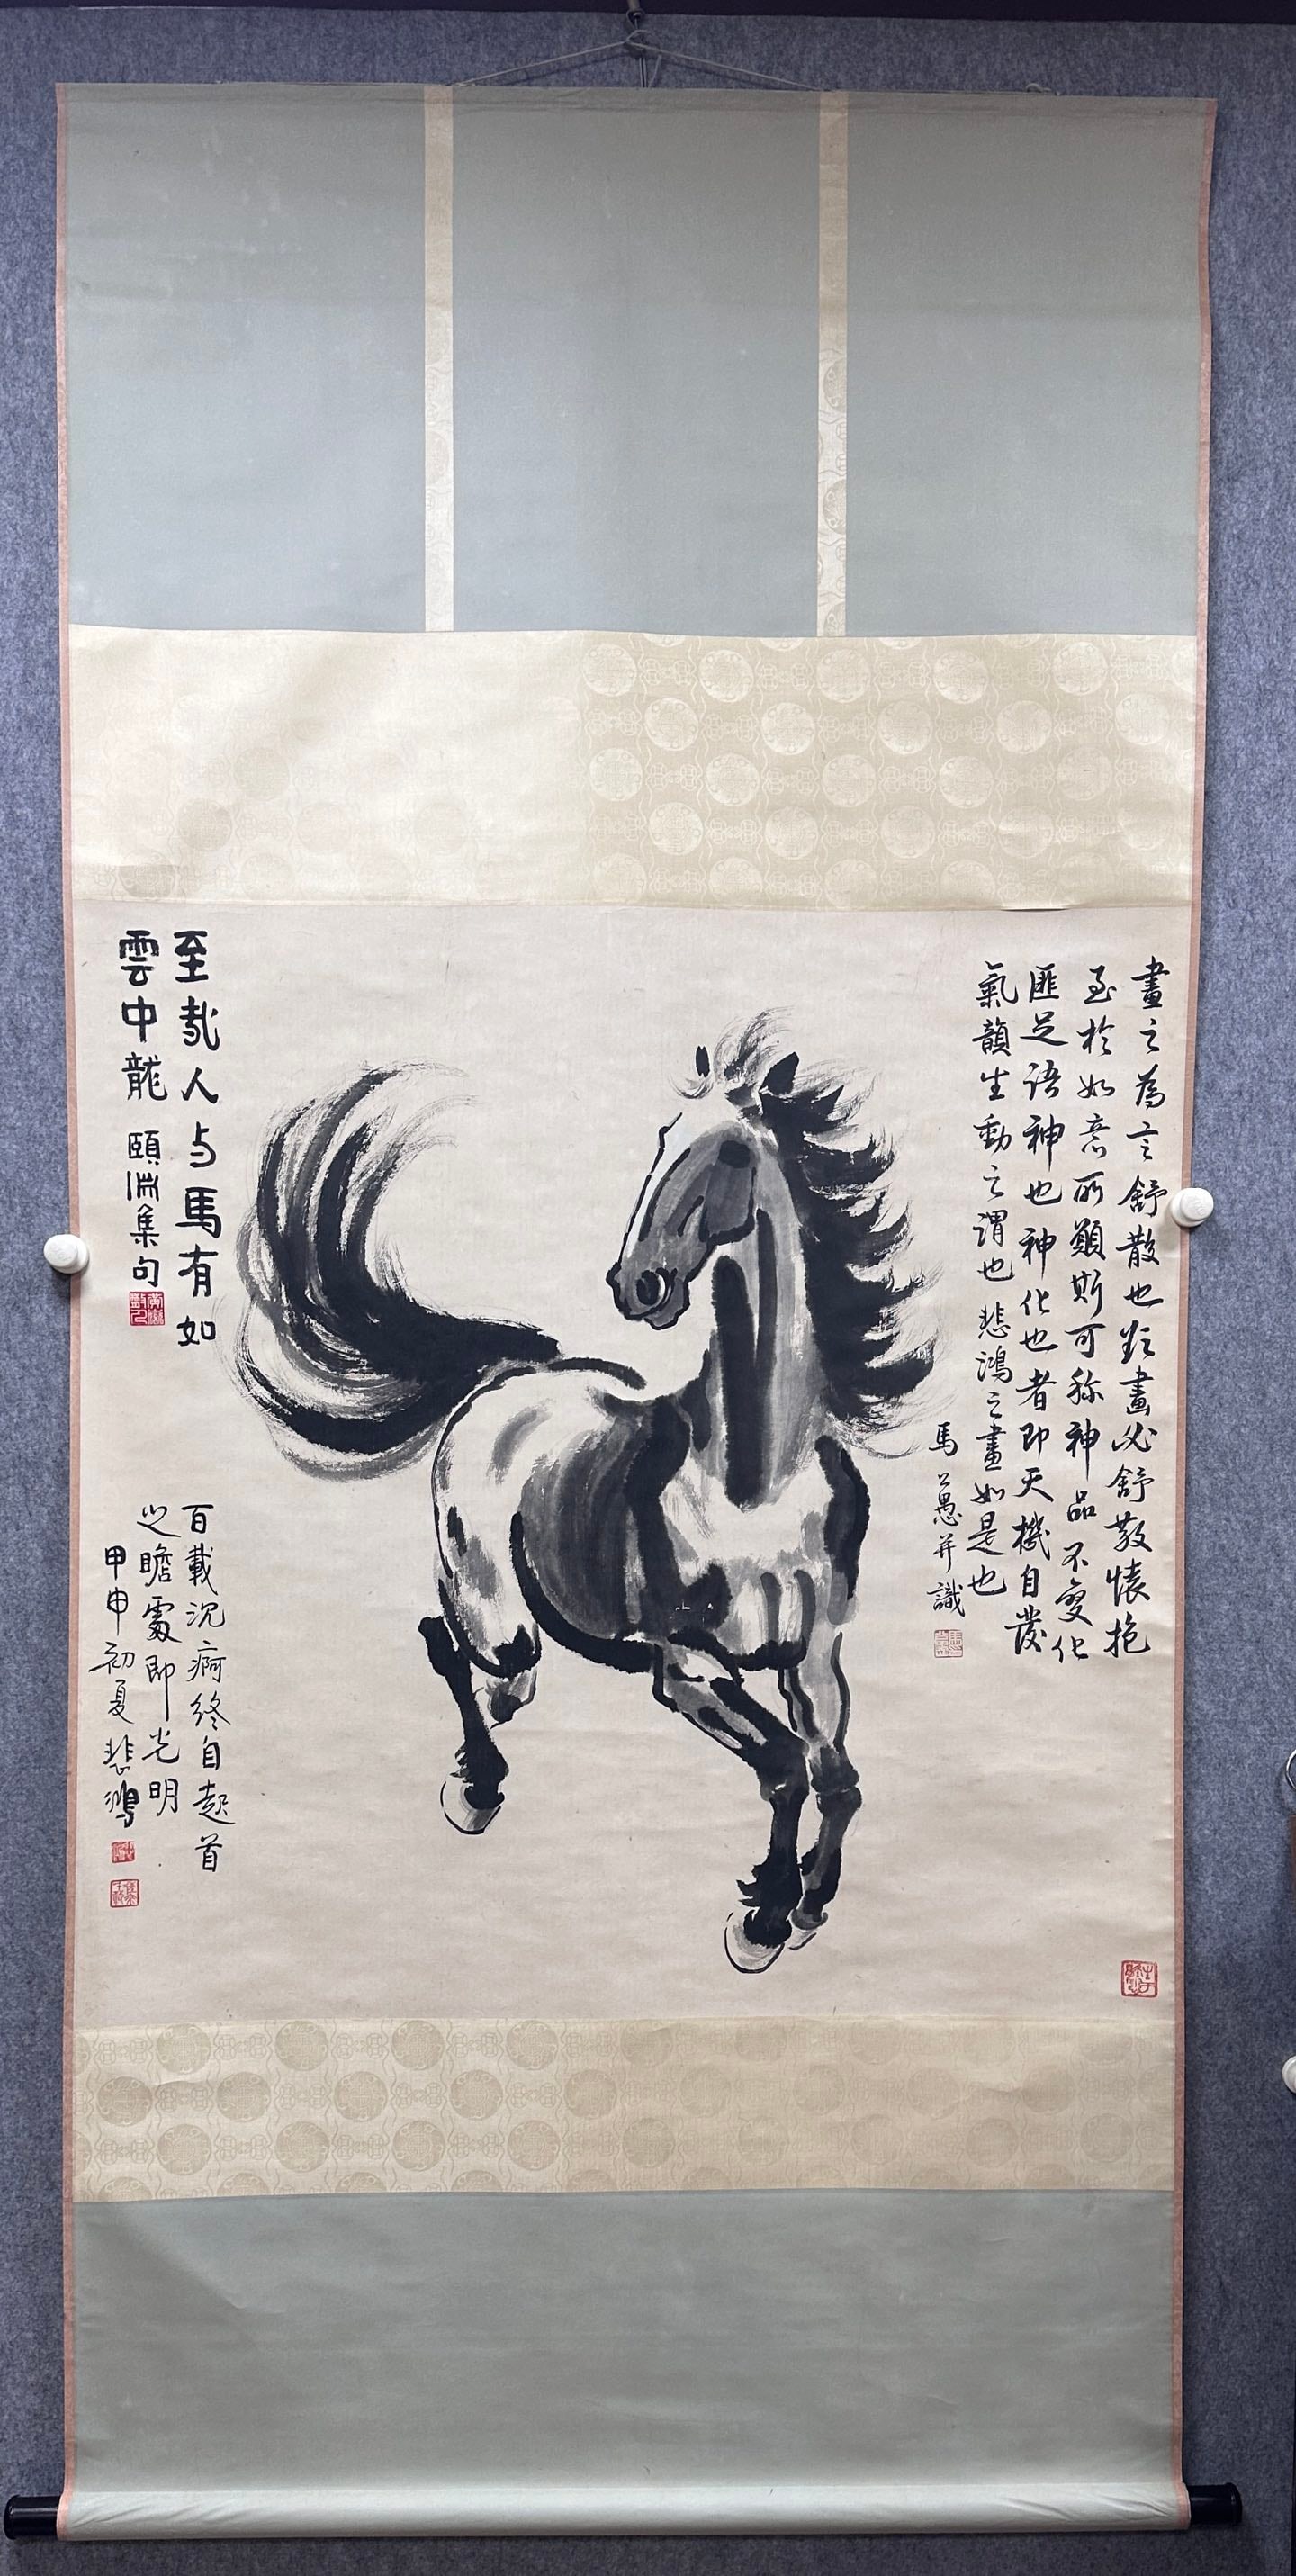 畫之為言舒散也㱏畫必舒散懷抱
至於如意所顓斯可称神品不變化
匪足语神也神化也者即天機自發
氣韻生動之谓也悲鴻之畫如是也
馬萬里并識
至哉人与馬有如
雲中龍 頤淵集句
百載沉疴終自起首
之瞻處即光明
甲申初夏悲鴻